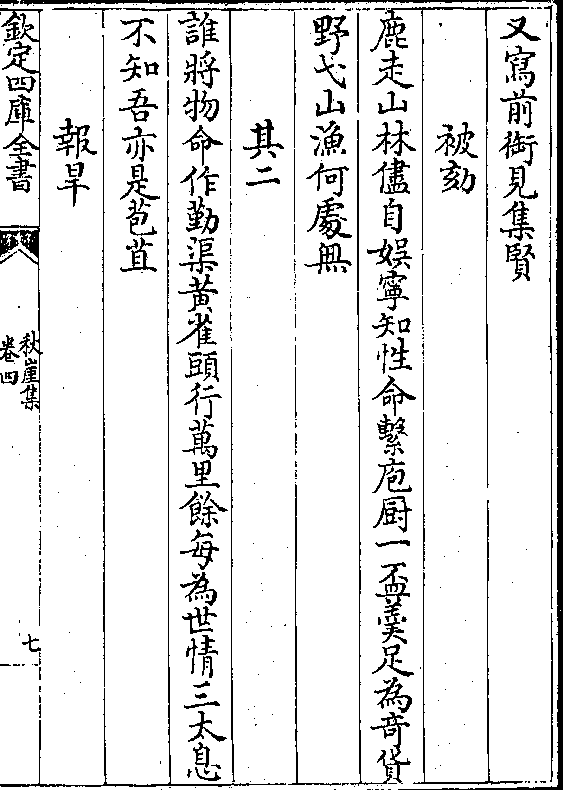 又寫前銜見集賢
被劾
鹿走山林儘自娯寧知性命繫庖厨一盃羮足為竒貨
野弋山漁何處無
其二
誰將物命作勤渠黄雀頭行萬里餘每為世情三太息
不知吾亦是苞苴
報旱
欽定四庫全書
秋崖集
卷四
七